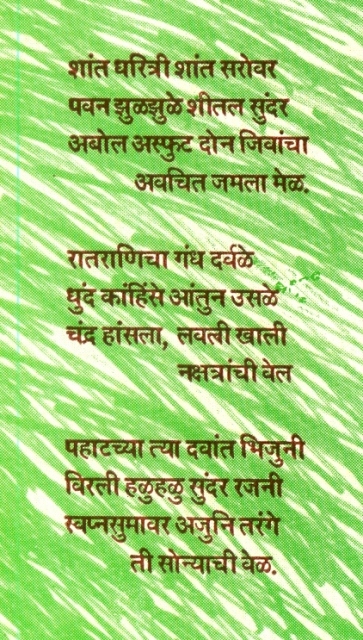 शांत धरित्री शांत सरोवर
पवन झुळझुळे शीतल सुंदर
अबोल अस्फुट दोन जिवांचा
अवचित जमला मेळ.
रातराणिचा गंध दर्वळे
धुंद कांहिंसे आंतुन उसळे
चंद्र हांसला, लवली खाली
नक्षत्रांची वेल
पहाटच्या त्या दवांत भिजुनी
विरली हळुहळु सुंदर रजनी
स्वप्नसुमावर अजुनि तरंगे
ती सोन्याची वेळ.